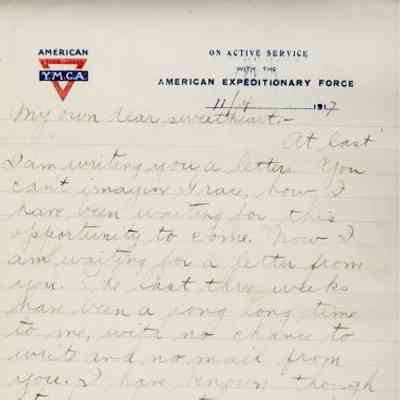 AMERICAN
Y.M.C.A.
ON ACTIVE SERVICE
WITH THE
AMERICAN EXPEDITIONARY FORCE
11/14 1917
My own dear sweetheart:-
At last
I am writing you a letter. You
can't imagin Grace, how I
have been waiting for this
opportunity to come. Now I
am waiting for a letter from
you. The last three weeks
have been a long long time
to me, with no chance to
write and no mail from
you. I have known though